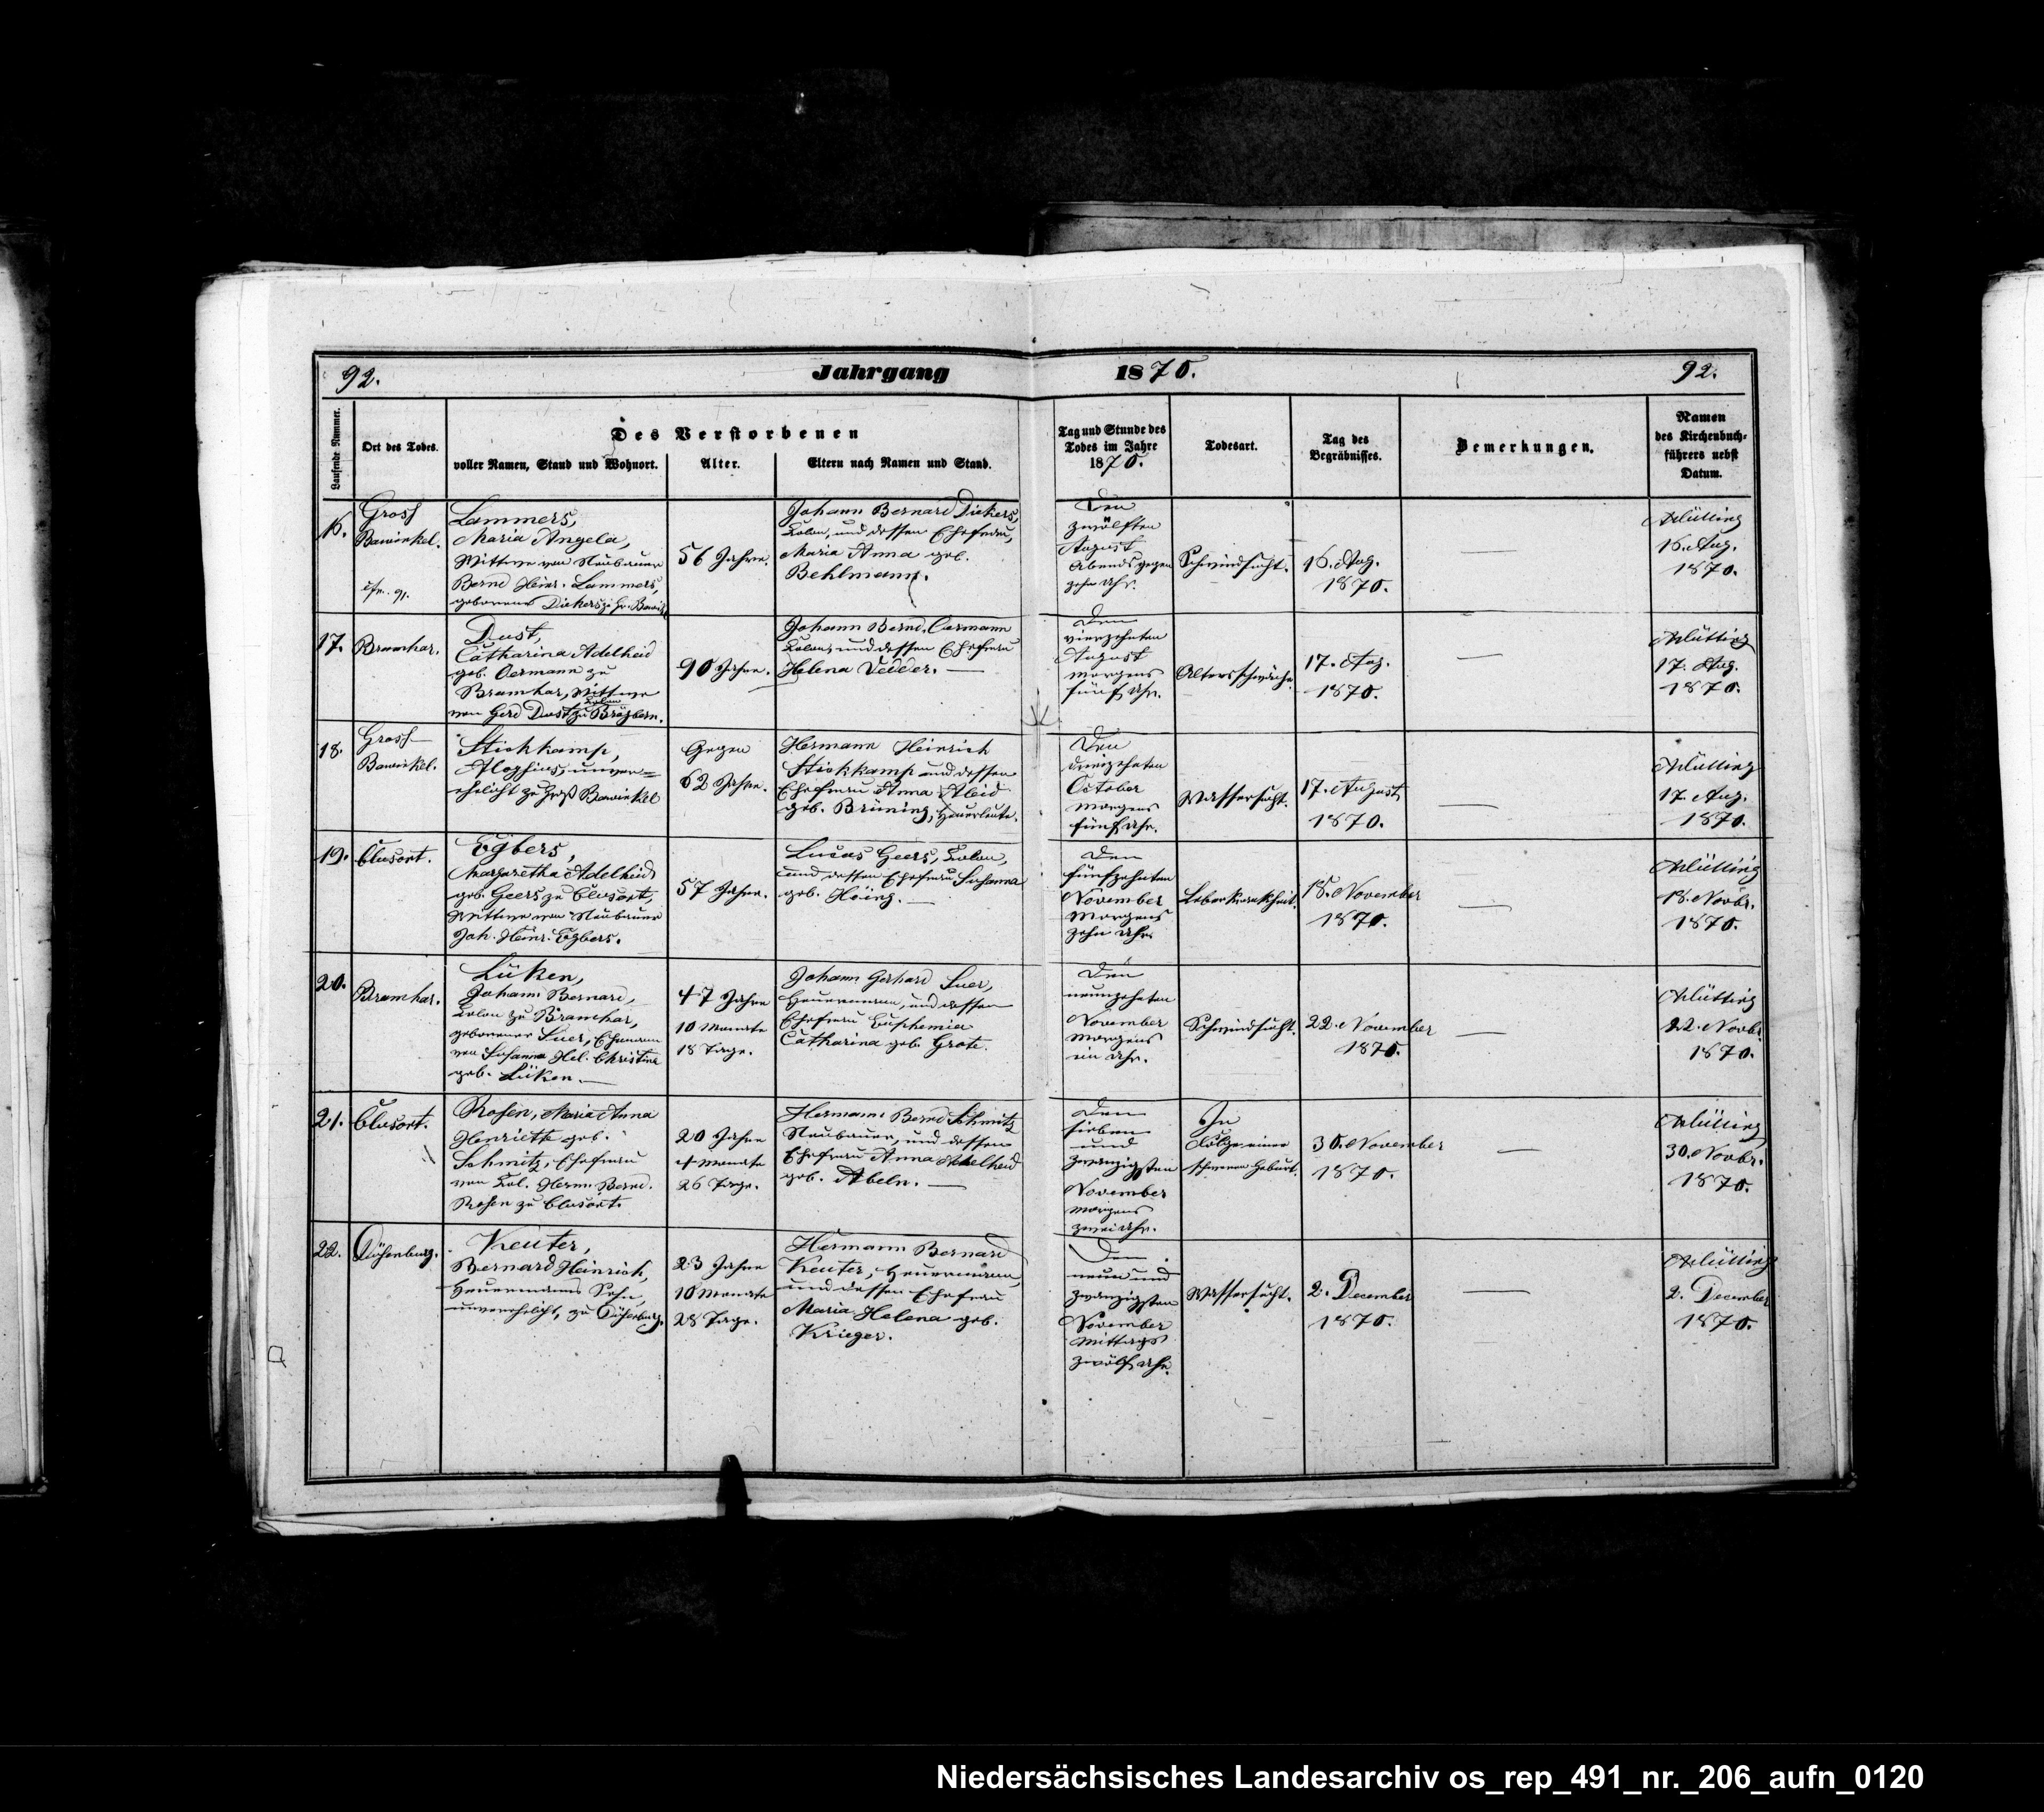 92.
Jahrgang 1870.
92.
Laufende Nummer.
Ort des Todes.
Des Verstorbenen
voller Namen, Stand und Wohnort.
Alter.
Eltern nach Namen und Stand.
Tag und Stunde des
Todes im Jahre
1870.
Todesart.
Tag des
Begräbnisses.
Bemerkungen.
Namen
des Kirchenbuch-
führers nebst
Datum.
16.
Gross
Bawinkel.
Lammers,
Maria Angela,
Wittwe von Neubauer
Bernd Heinr. Lammers,
geborene Diekers zu Gr. Bawinkel
56 Jahre.
Johann Bernard Diekers,
Colon, und dessen Ehefrau,
Maria Anna geb.
Behlmann.
Den
zwölften
August
Abends gegen
zehn Uhr.
Schwindsucht.
16. Aug.
1870.
—
16. Aug.
1870.
17.
Bramhar.
Dust,
Catharina Adelheid
geb. Oermann zu
Bramhar, Wittwe
von Gerd Dust, Colon zu Brögbern.
90 Jahre.
Johann Bernd Oermann
Colon, und dessen Ehefrau
Helena Vedder. —
Den
vierzehnten
August
morgens
fünf Uhr.
Altersschwäche.
17. Aug.
1870.
—
17. Aug.
1870.
18.
Gross-
Bawinkel.
Stiekkamp,
Aloysius, unver=
ehelicht zu Groß Bawinkel
Gegen
62 Jahre.
Hermann Heinrich
Stiekkamp und dessen
Ehefrau Anna Aleid
geb. Brüning, Heuerleute.
Den
dreizehnten
October
morgens
fünf Uhr.
Wassersucht.
17. August
1870.
—
17. Aug.
1870.
19.
Clusort.
Egbers,
Margaretha Adelheid
geb. Geers zu Clusort,
Wittwe von Neubauer
Joh. Heinr. Egbers.
57 Jahre.
Lucas Geers, Colon,
und dessen Ehefrau Susanna
geb. Höing. —
Den
fünfzehnten
November
Morgens
zehn Uhr
Leberkrankheit.
18. November
1870.
—
18. Novbr.
1870.
20.
Bramhar.
Lüken,
Johann Bernard,
Colon zu Bramhar,
geborener Suer, Ehemann
von Susanna Hel. Christina
geb. Lüken. —
47 Jahre
10 Monate
18 Tage.
Johann Gerhard Suer,
Heuermann, und dessen
Ehefrau Euphemia
Catharina geb. Grote.
Den
neunzehnten
November
Morgens
ein Uhr.
Schwindsucht.
22. November
1870.
—
22. Novbr.
1870.
21.
Clusort.
Rosen, Maria Anna
Henriette geb.
Schmitz, Ehefrau
von Col. Herm. Bernd.
Rosen zu Clusort.
20 Jahre
4 Monate
26 Tage.
Hermann Bernd Schmitz
Neubauer, und dessen
Ehefrau Anna Adelheid
geb. Abeln. —
Den
sieben
und
zwanzigsten
November
morgens
zwei Uhr.
In
Folge einer
schweren Geburt.
30. November
1870.
—
30. Novbr.
1870.
22.
Duisenburg.
Keuter,
Bernard Heinrich,
Heuermanns Sohn,
unverehelicht, zu Duisenburg.
23 Jahre
10 Monate
28 Tage.
Hermann Bernard
Keuter, Heuermann,
und dessen Ehefrau
Maria Helena geb.
Krieger.
Den
neun und
zwanzigsten
November
Mittags
zwölf Uhr.
Wassersucht.
2. December
1870.
—
2. December
1870.
Niedersächsisches Landesarchiv os_rep_491_nr._206_aufn_0120